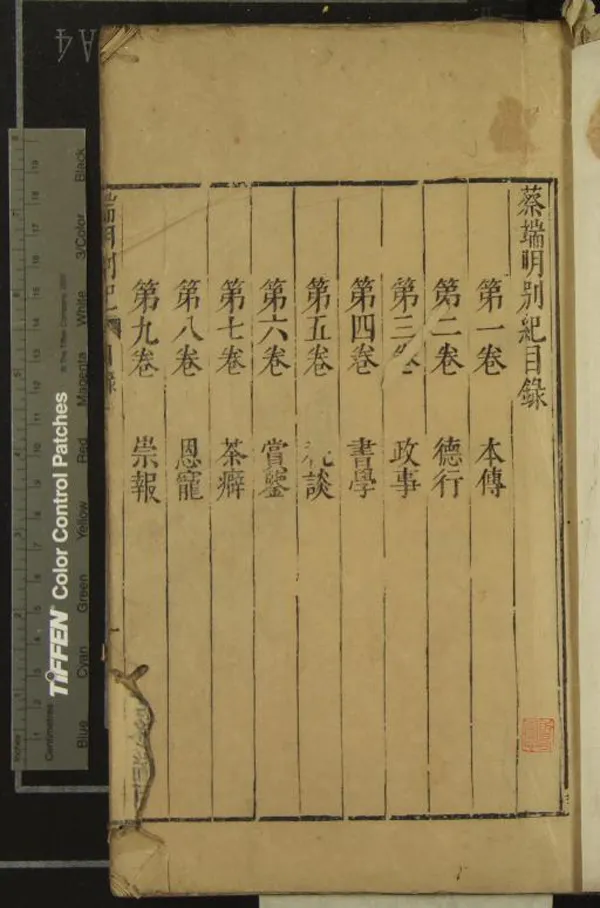 蔡端明別紀目錄
第一卷 本傳
第二卷 德行
第三卷 政事
第四卷 書學
第五卷 談
第六卷 賞鑒
第七卷 茶癖
第八卷 恩寵
第九卷 崇報
端明別紀 目錄
A4
TIFFEN Color Control Patches
© The Tiffen Company, 2007
Inches
Centimetres
Blue Cyan Green Yellow Red Magenta White 3/Color Black